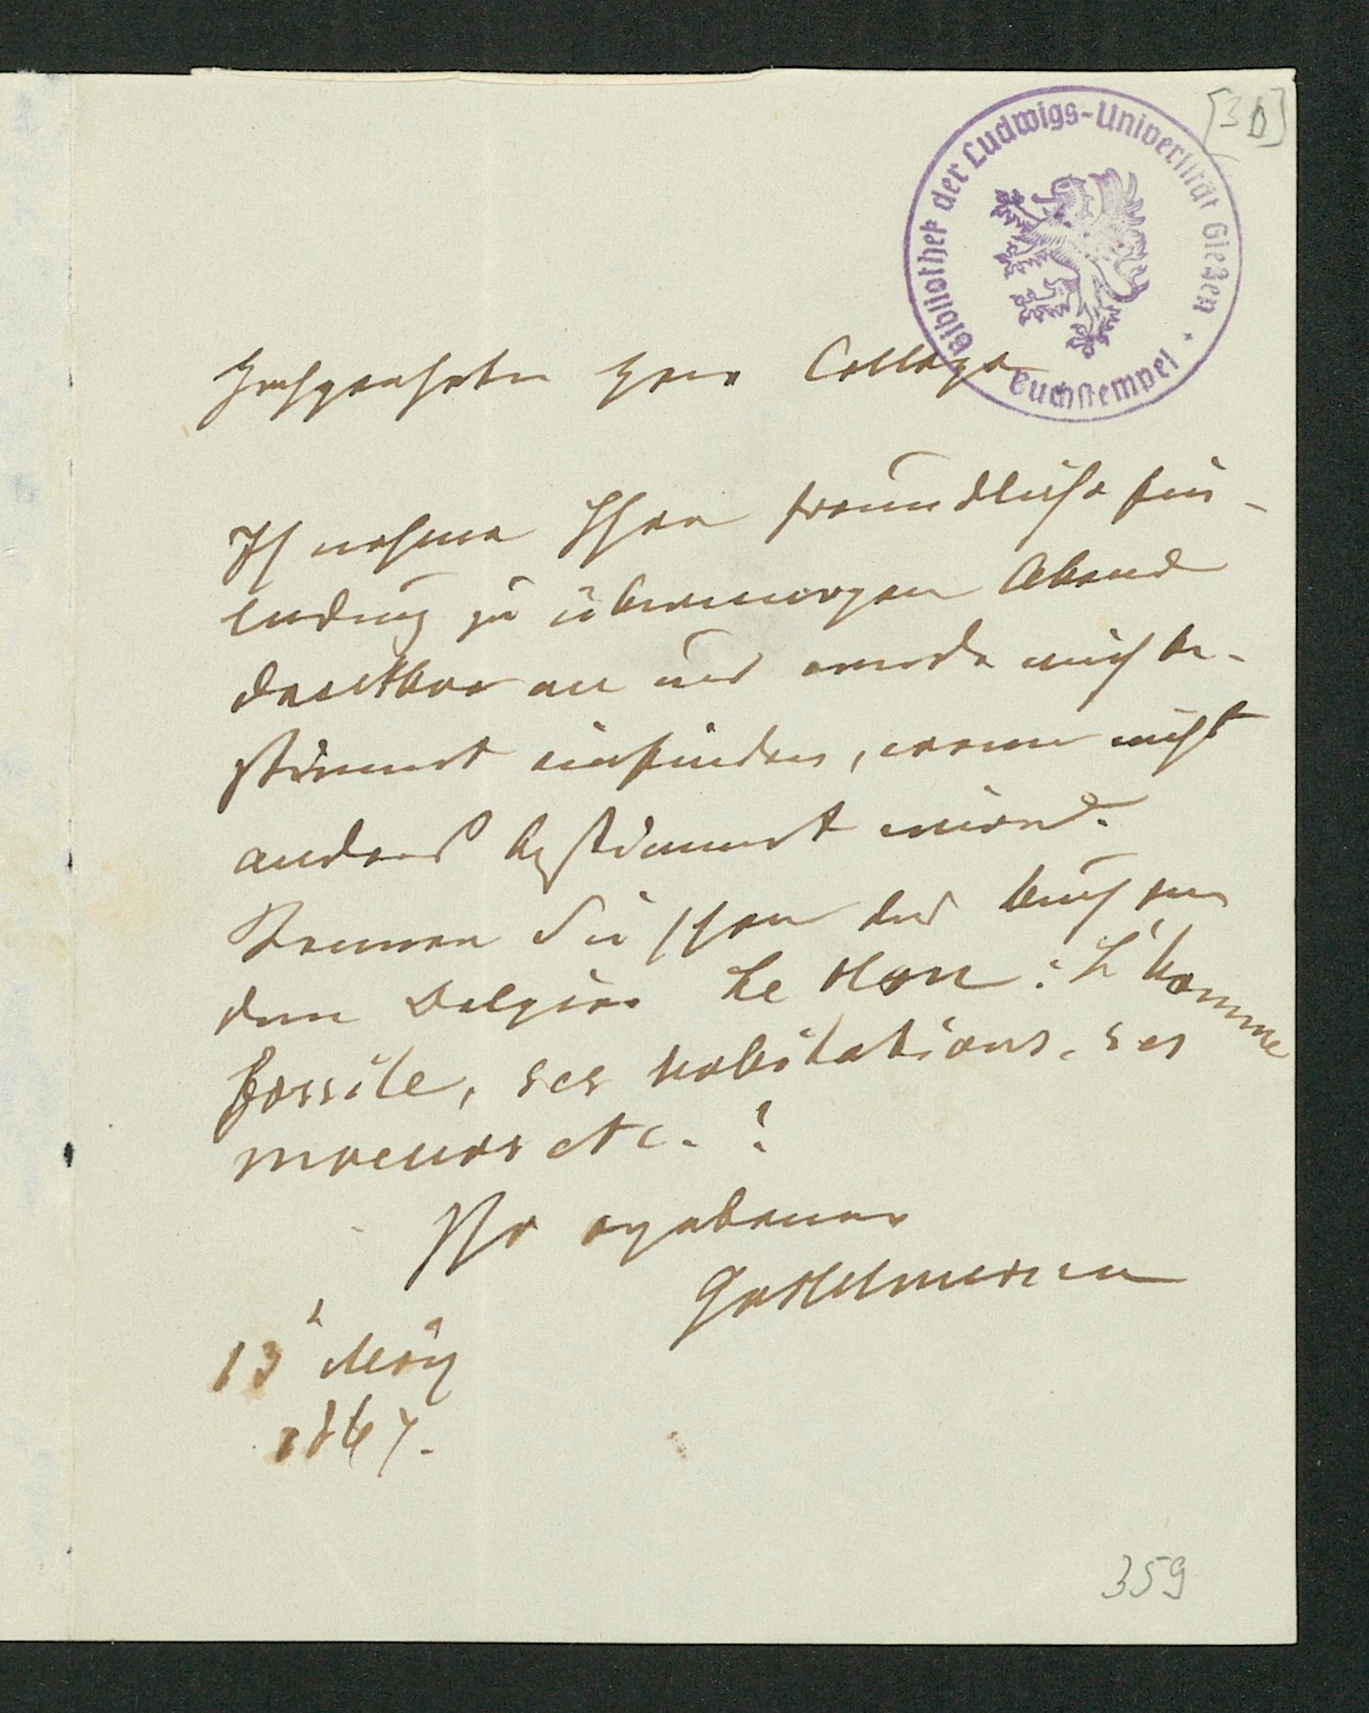 [3b]
Bibliothek der Ludwigs-Universität Gießen
Buchstempel
Hochgeehrter Herr College
Ich nehme Ihre freundliche Ein-
ladung zu übermorgen Abend
dankbar an und werde mich be-
stimmt einfinden, wenn nicht
anders bestimmt wird.
Kennen Sie schon das Buch von
dem Belgier Le Hon: L'homme
fossile, ses habitations, ses
moeurs etc.?
Ihr ergebener
13 März
1867.
359